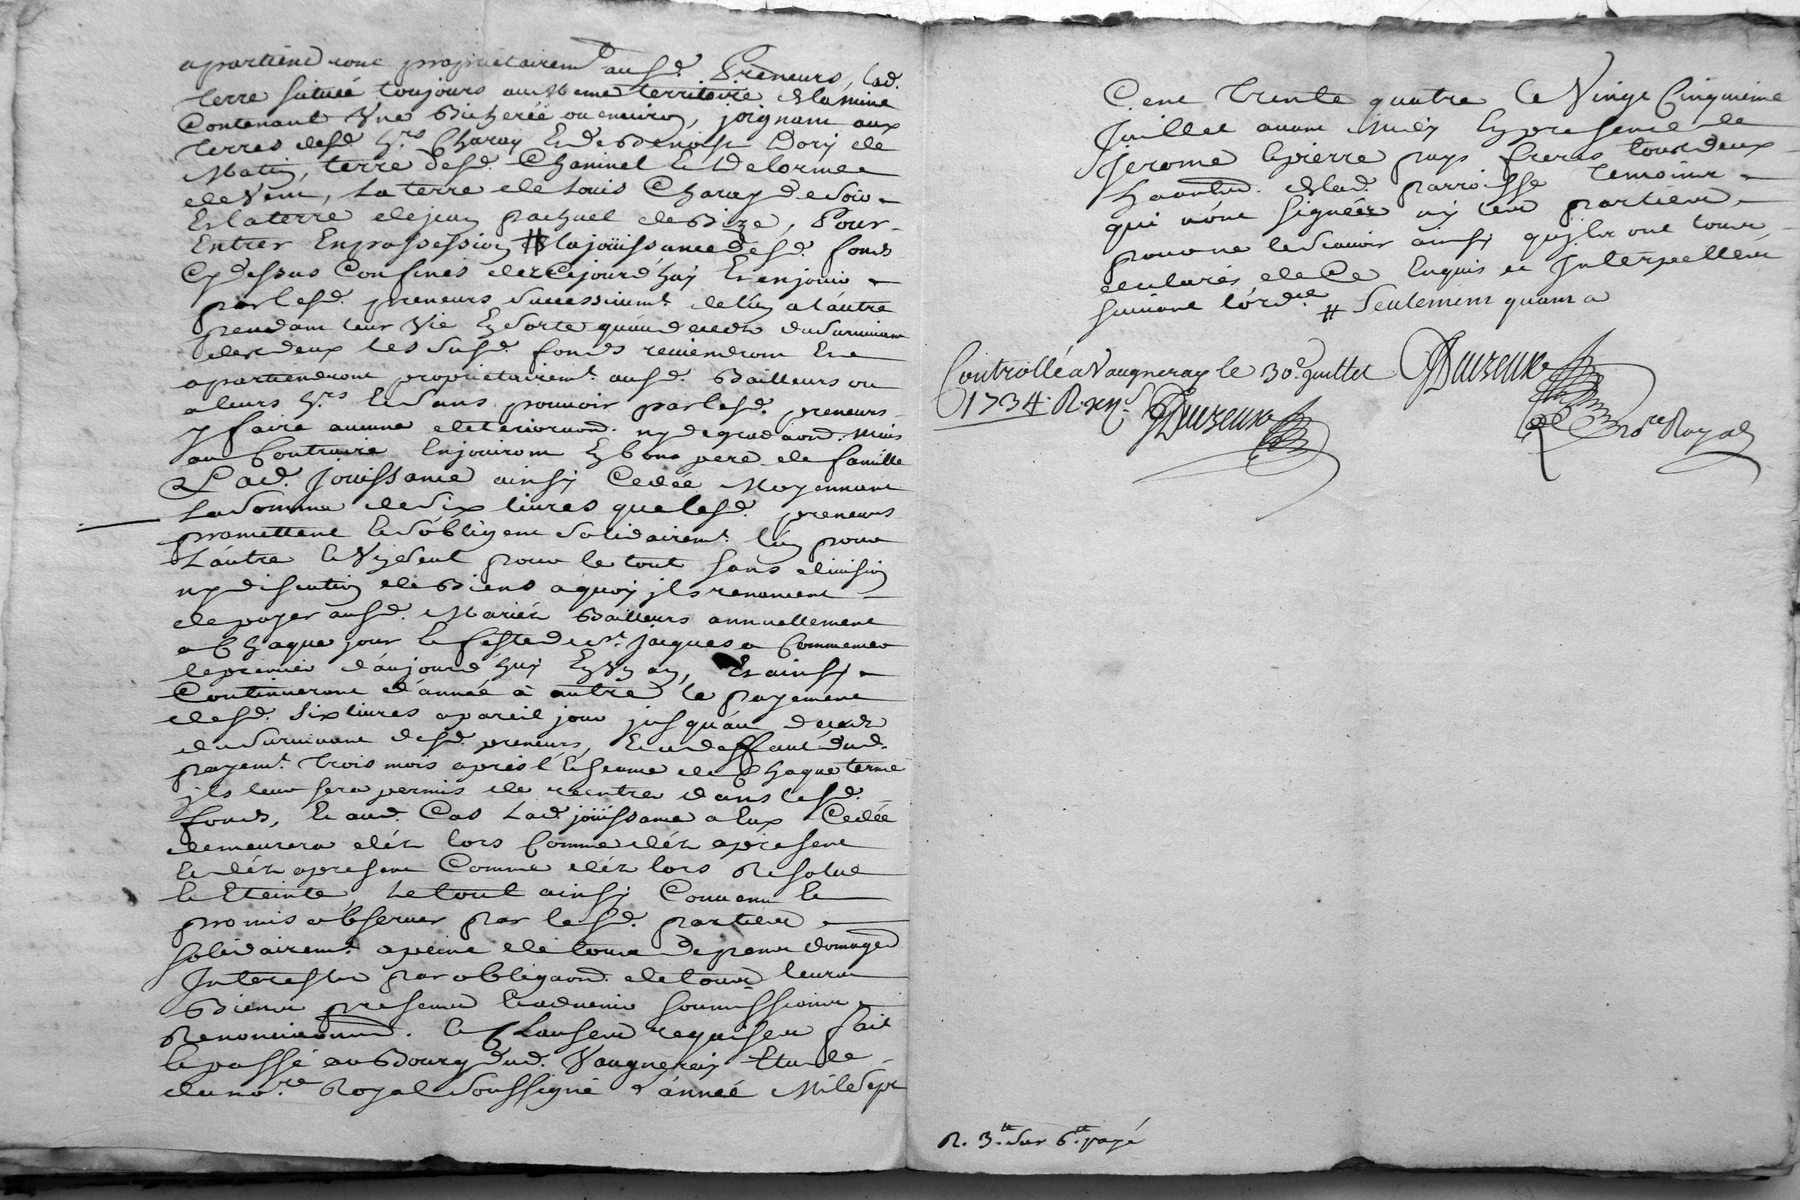 apartiendront propriétairemt ausd. Preneurs, lad.
terre située toujours au meme territoire de la mine
Contenant Une Bicherée ou environ, joignant aux
terres desd. hrs Charay Et de Benoist Dory de
Matin, terre desd. Chaninel et Delorme
de Vent, La terre de Louis Charay de Soir
Et la terre de jean pachuel de Bize, Pour
Entrer En possession # Et la joüissance desd. fonds
Cy dessus Confinés dez Cejourd'huy Et en jouir
par lesd. preneurs Successivemt de l'un a l'autre
pendant leur Vie En sorte qu'au deced du Survivant
des deux les susd. fonds reviendront Et
apartiendront propriétairemt ausd. Bailleurs ou
a leurs hrs Et sans pouvoir par lesd. preneurs
y faire aucune deterioraond. ny degradaond. Mais
au Contraire En jouiront En bons pere de famille
Lad. Jouissance ainsy Cedée Moyennant
La Somme de Six livres que lesd. preneurs
promettent Et s'obligent Solidairemt l'un pour
L'autre Et Un seul pour le tout sans division
ny discution de Biens a quoy ils renoncent
de payer ausd. Mariés Bailleurs annuellement
a Chaque jour Et feste de St Jacques a Commencer
le premier d'aujourd'huy En Un an, Et ainsy
Continueront d'année à autre le payement
desd. Six livres a pareil jour jusqu'au decedz
du Survivant desd. preneurs, Et a deffaut dud.
payemt trois mois après l'Echeance de Chaque terme
ils leur sera permis de rentrer dans lesd.
fonds, Et aud. Cas Lad. joüissance a Eux Cedée
demeurera déz lors Comme déz apresent
Et déz apresent Comme déz lors Resolue
Et Eteinte, Le tout ainsy Convenu Et
promis observer par lesd. parties
Solidairemt a peine de tous depens domages
Interests par obligaond. de tous leurs
Biens presents Et advenir Soumissions
Renonciaond. Et Clauses requises fait
Et passé au Bourg dud. Vaugneray Etude
du nore Royal Soussigné L'année Mil Sept
Cent trente quatre Le Vingt Cinquieme
Juillet avant Midy En presence de
Jerome Et pierre pays freres tous deux
habitants de lad. parroisse temoins
qui n'ont signées ny les parties
pour ne le Scavoir ainsy qu'ils ont tous
declarés de Ce Enquis et Interpellées
suivant l'ordce # Seulement quant a
Controllé a Vaugneray le 30e juillet
1734. R. xijs Duzeux
Duzeux
Nore Royal
R. 3tt Sur 6tt payé